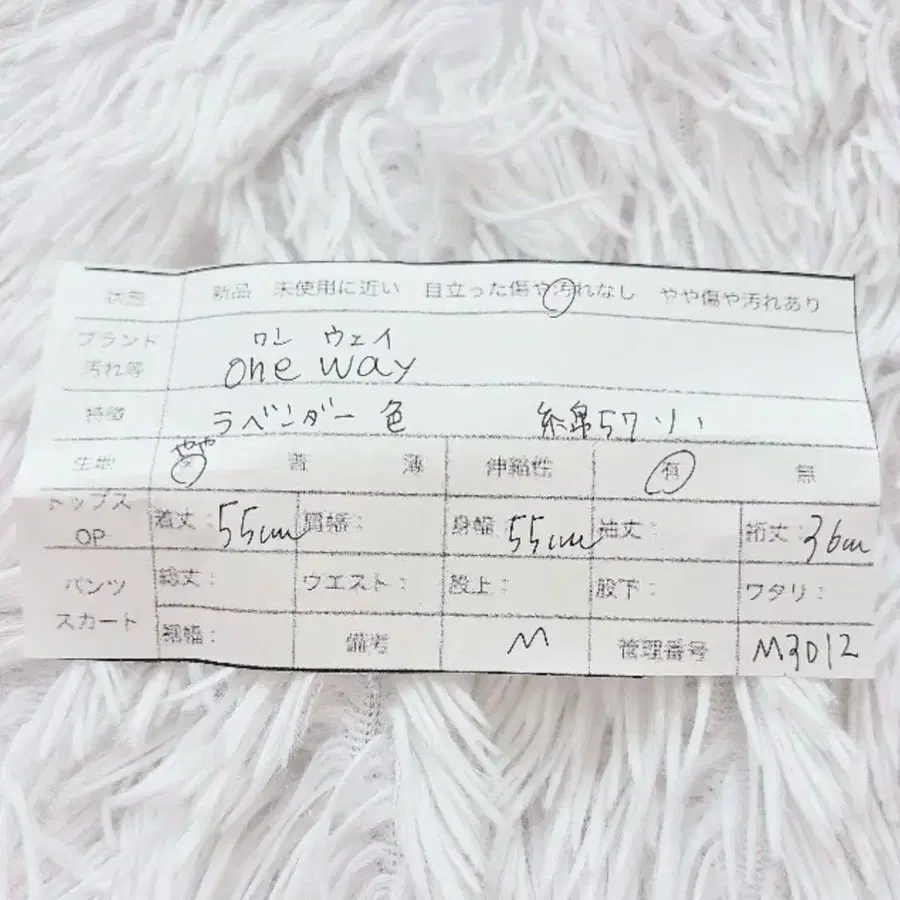 状態 新品 未使用に近い 目立った傷や汚れなし やや傷や汚れあり
ブランド ワン ウェイ
汚れ等 one way
特徴 ラベンダー色 綿57
生地 やや 普 薄 伸縮性 有 無
トップス 着丈:55cm 肩幅: 身幅:55cm 袖丈: 裄丈:36cm
OP
パンツ 総丈: ウエスト: 股上: 股下: ワタリ:
スカート 裾幅: 備考 M 管理番号 M3012